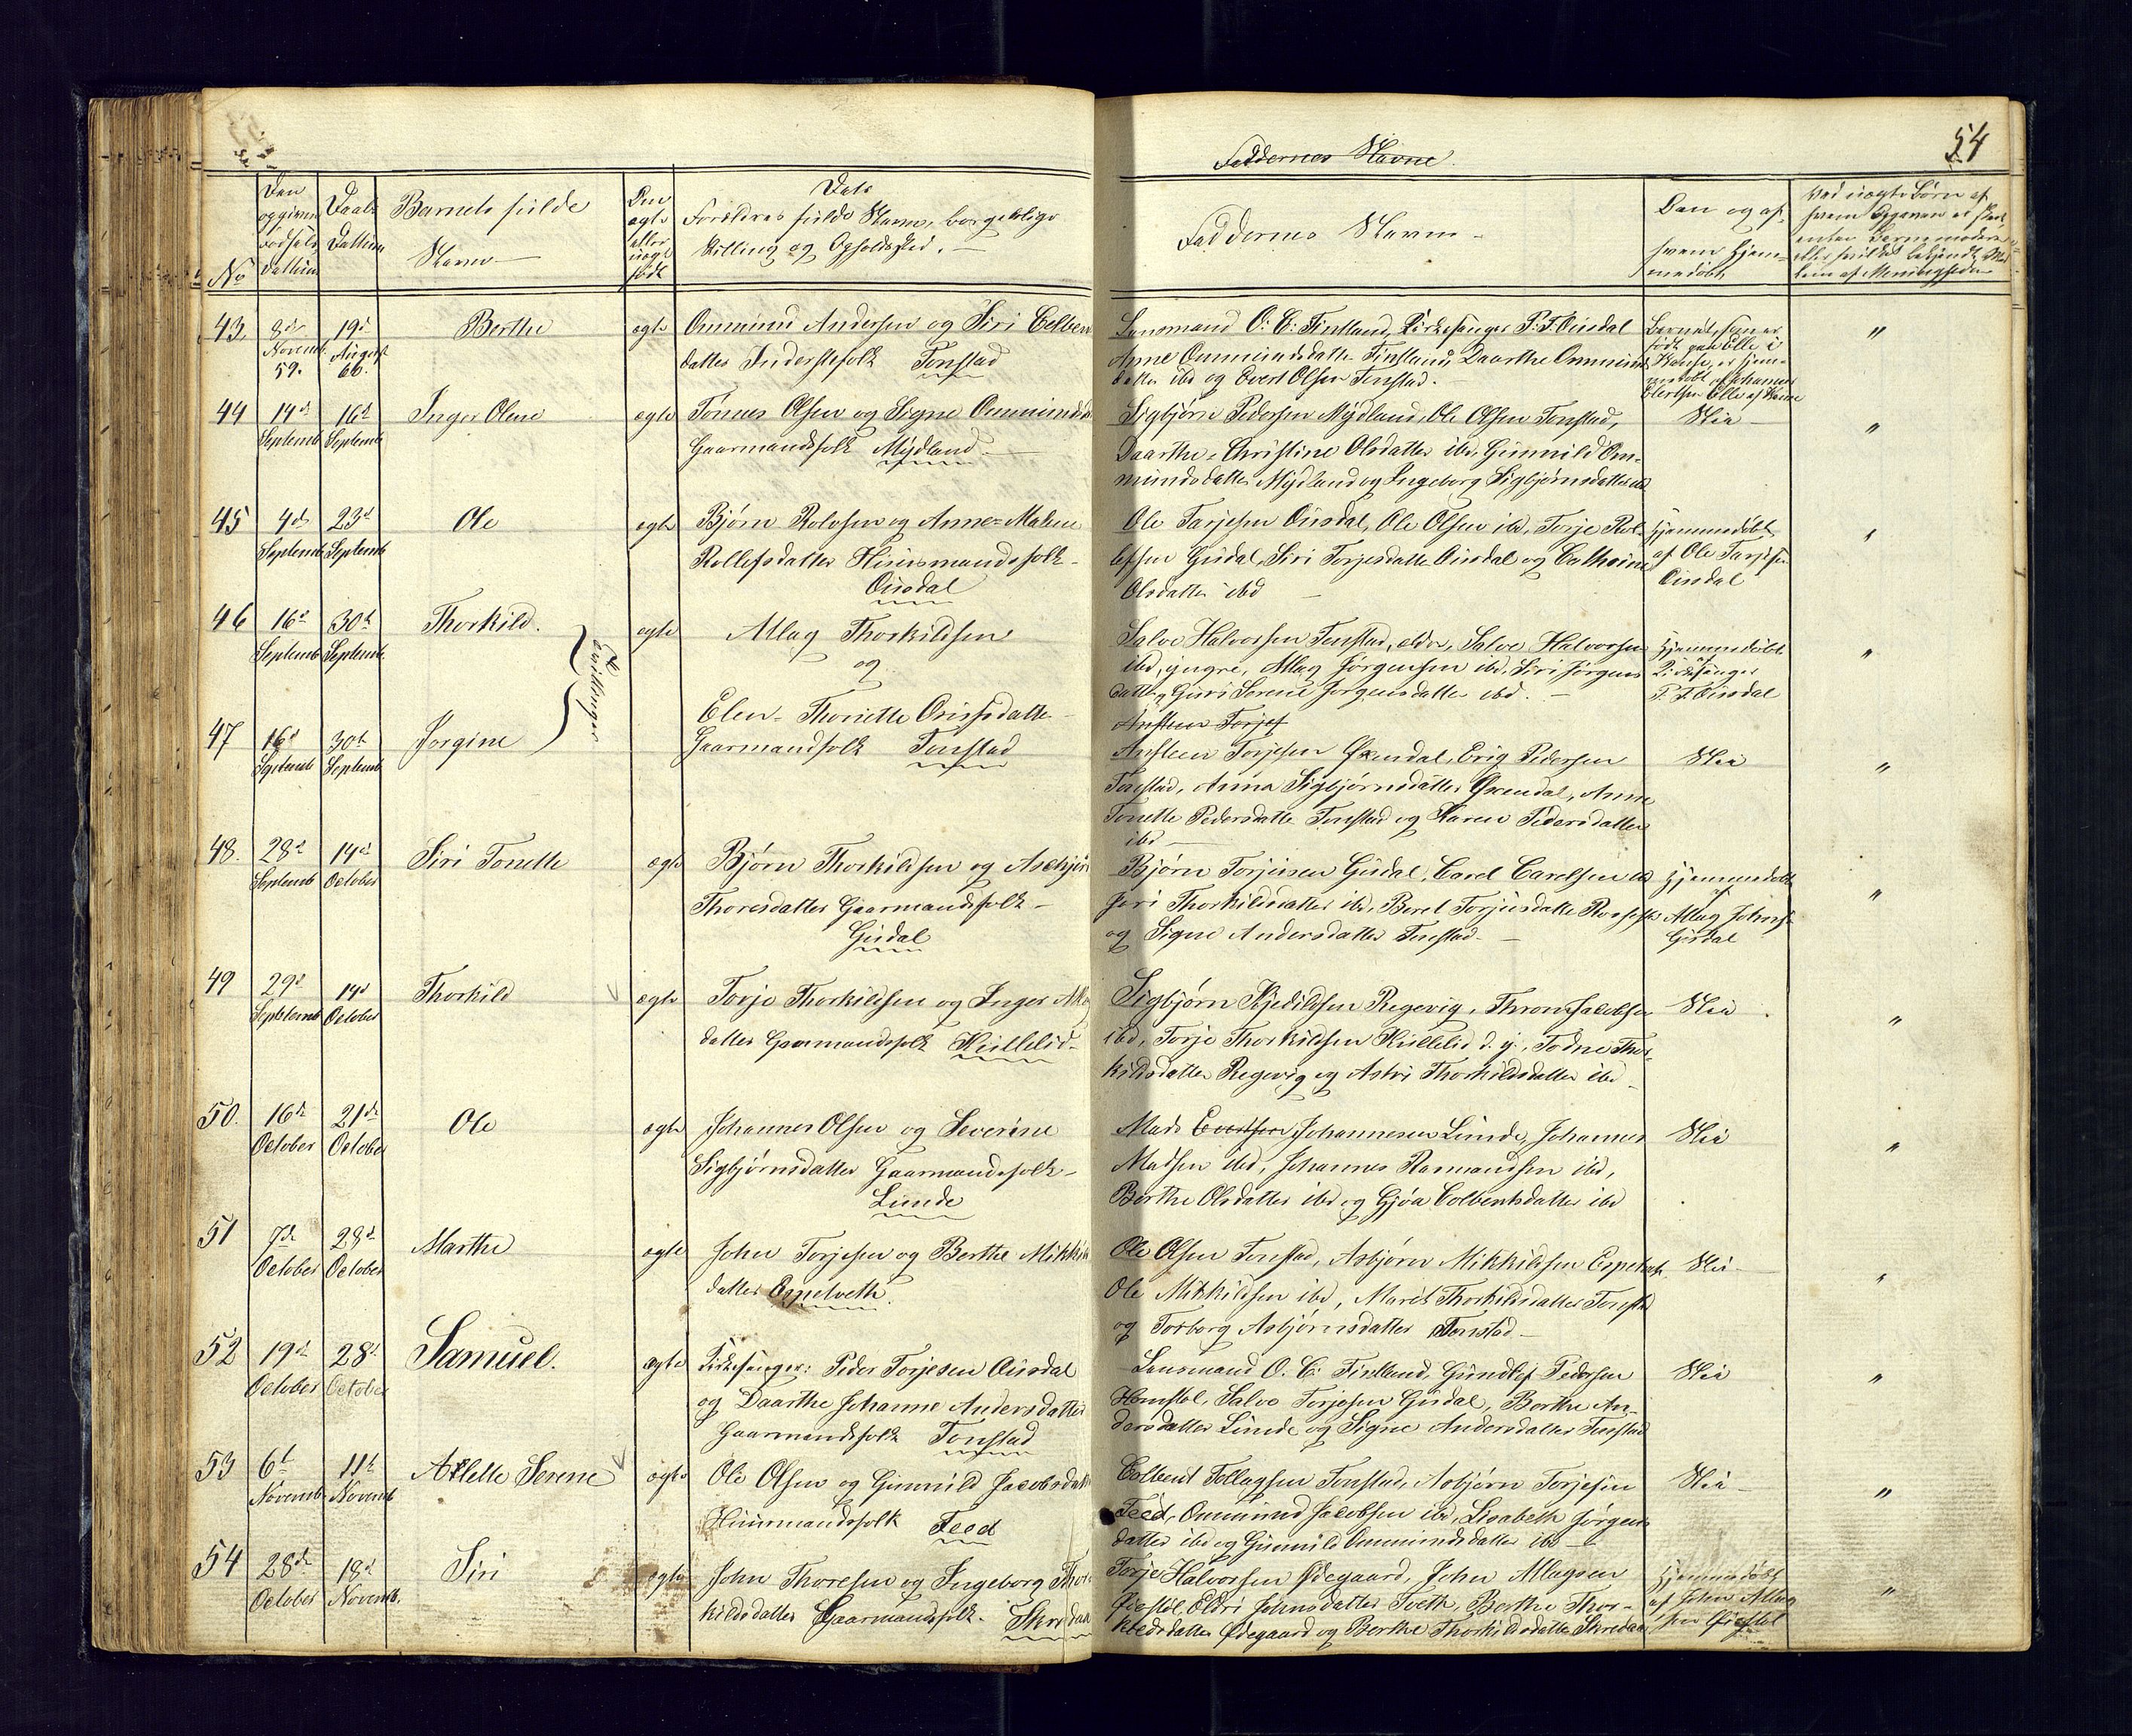 Faddernes Navne.
54
No
Den opgivne Fødsels Dattum
Daabs Dattum
Barnets fulde Navn
Den ægte eller uægte født
Dets Forældres fulde Navn, borgerlige Stilling og Opholdssted.
Faddernes Navne
Om og af hvem hjemmedøbt
43, 8de Novemb. 59. 19d August 60. Berthe ægte
Ommund Andersen og Siri
datter Inderstefolk Tonstad
Lensmand O: E: Fintland, Kirkesanger P: T. Ousdal
Anne Ommundsdatter Fintland, Daarthe Ommunds
datter ibd og Evert Olsen Tonstad.
Barnet, som er
født paa Elle i
hjem-
medøbt af Johannes
Elertsen Elle af
"
44 14d Septemb 16d Septemb Inger Olene ægte
Tønnes Olsen og Signe Ommundsda
Gaarmandsfolk Mydland.
Sigbjørn Pedersen Mydland, Ole Olsen Tonstad,
Daarthe-Christine Olsdatter ibd, Gunnild Om-
mundsdatter Mydland og Ingeborg Sigbjørnsdatter ibd
Nei
"
45 4de Septemb 23d Septemb Ole ægte
Bjørn Rolvsen og Anne-Malene
Rollefsdatter Huusmandsfolk
Ousdal
Ole Tarjesen Ousdal, Ole Olsen ibd, Torje Rol-
lefsen Gusdal, Siri Torjesdatter Ousdal og Cathrine
Olsdatter ibd
Hjemmedøbt
af Ole Tarjesen
Ousdal
"
46 16d Septemb 30te Septemb Thorkild. Tvillinger ægte
Atlag Thorkildsen
og
Salve Halvorsen Tonstad, ældre, Salve Halvorsen
ibd, yngre, Atlag Jørgensen ibd, Siri Jørgens
datter, Guri Serene Jørgensdatter ibd.
Hjemmedøbt
Kirkesanger
P. T. Ousdal
"
47 16d Septemb 30te Septemb Jorgine
Elen-Thonette datter
Gaarmandsfolk Tonstad
Ansteen Torjes
Ansteen Torjesen Øxendal, Erig Pedersen
Tonstad, Anna Sigbjørnsdatter Øxendal, Anne
Tonette Pedersdatter Tonstad og Karen Pedersdatter
ibd
Nei
"
48. 28d Septemb 14d October Siri Tonette ægte
Bjørn Thorkildsen og
Thoresdatter Gaarmandsfolk
Gusdal
Bjørn Torjusen Gusdal, Carel Carelsen ibd
Thorkildsdatter ibd, Beret Torjusdatter
og Signe Andersdatter Tonstad
Hjemmedøbt
af
Atlag Johns
Gusdal
"
49 29d Septemb 14d October Thorkild ægte
Torje Thorkildsen og Inger Atlag
datter Gaarmandsfolk Kvillelid
Sigbjørn Kjedilsen Regevig, Thron Jacobsen
ibd, Torje Thorkildsen Kvillelid d. y., Todne Thor-
kildsdatter Regevig og Astri Thorkildsdatter ibd
Nei
"
50. 16de October 21de October Ole ægte
Johannes Olsen og Severine
Sigbjørnsdatter Gaarmandsfolk
Lunde
Mads Evertsen, Johannesen Lunde, Johannes
Madsen ibd, Johannes Ramundsen ibd,
Berthe Olsdatter ibd og Gjøa Colbentsdatter ibd
Nei
"
51 7de October 28d October Marthe ægte
John Torjesen og Berthe Mikkils
datter Espetveth.
Ole Olsen Tonstad, Asbjørn Mikkilsen Espetveth,
Ole Mikkilsen ibd, Marit Thorkildsdatter Tonstad
og Torborg Asbjørnsdatter Tonstad
Nei
"
52 19d October 28d October Samuel. ægte
Kirkesanger: Peder Torjesen Ousdal
og Daarthe Johanne Andersdatter
Gaarmandsfolk Tonstad
Lensmand O. E: Fintland, Gundlef Pedersen
Homstøl, Salve Torjesen Gusdal, Berthe An-
dersdatter Lunde og Signe Andersdatter Tonstad
Nei
"
53 6te Novemb 11te Novemb Atlette Serene ægte
Ole Olsen og Gunnild Jacobsdatt
Huusmandsfolk Feed
Colbent Tollagsen Tonstad, Asbjørn Torjesen
Feed, Ommund Jacobsen ibd, Lisabeth Jørgens
datter ibd og Gunnild Ommundsdatter ibd
Nei
"
54 28de October 18d Novemb. Siri ægte
John Thoresen og Ingeborg Thor
kildsdatter Gaarmandsfolk. Skredaa
Torje Halvorsen Ødegaard, John Atlagsen
Eldri Johnsdatter Tveth, Berthe Thor-
kildsdatter Ødegaard og Berthe Thorkildsdatter Skredaa
Hjemmedøbt
af John Atlag
sen
"